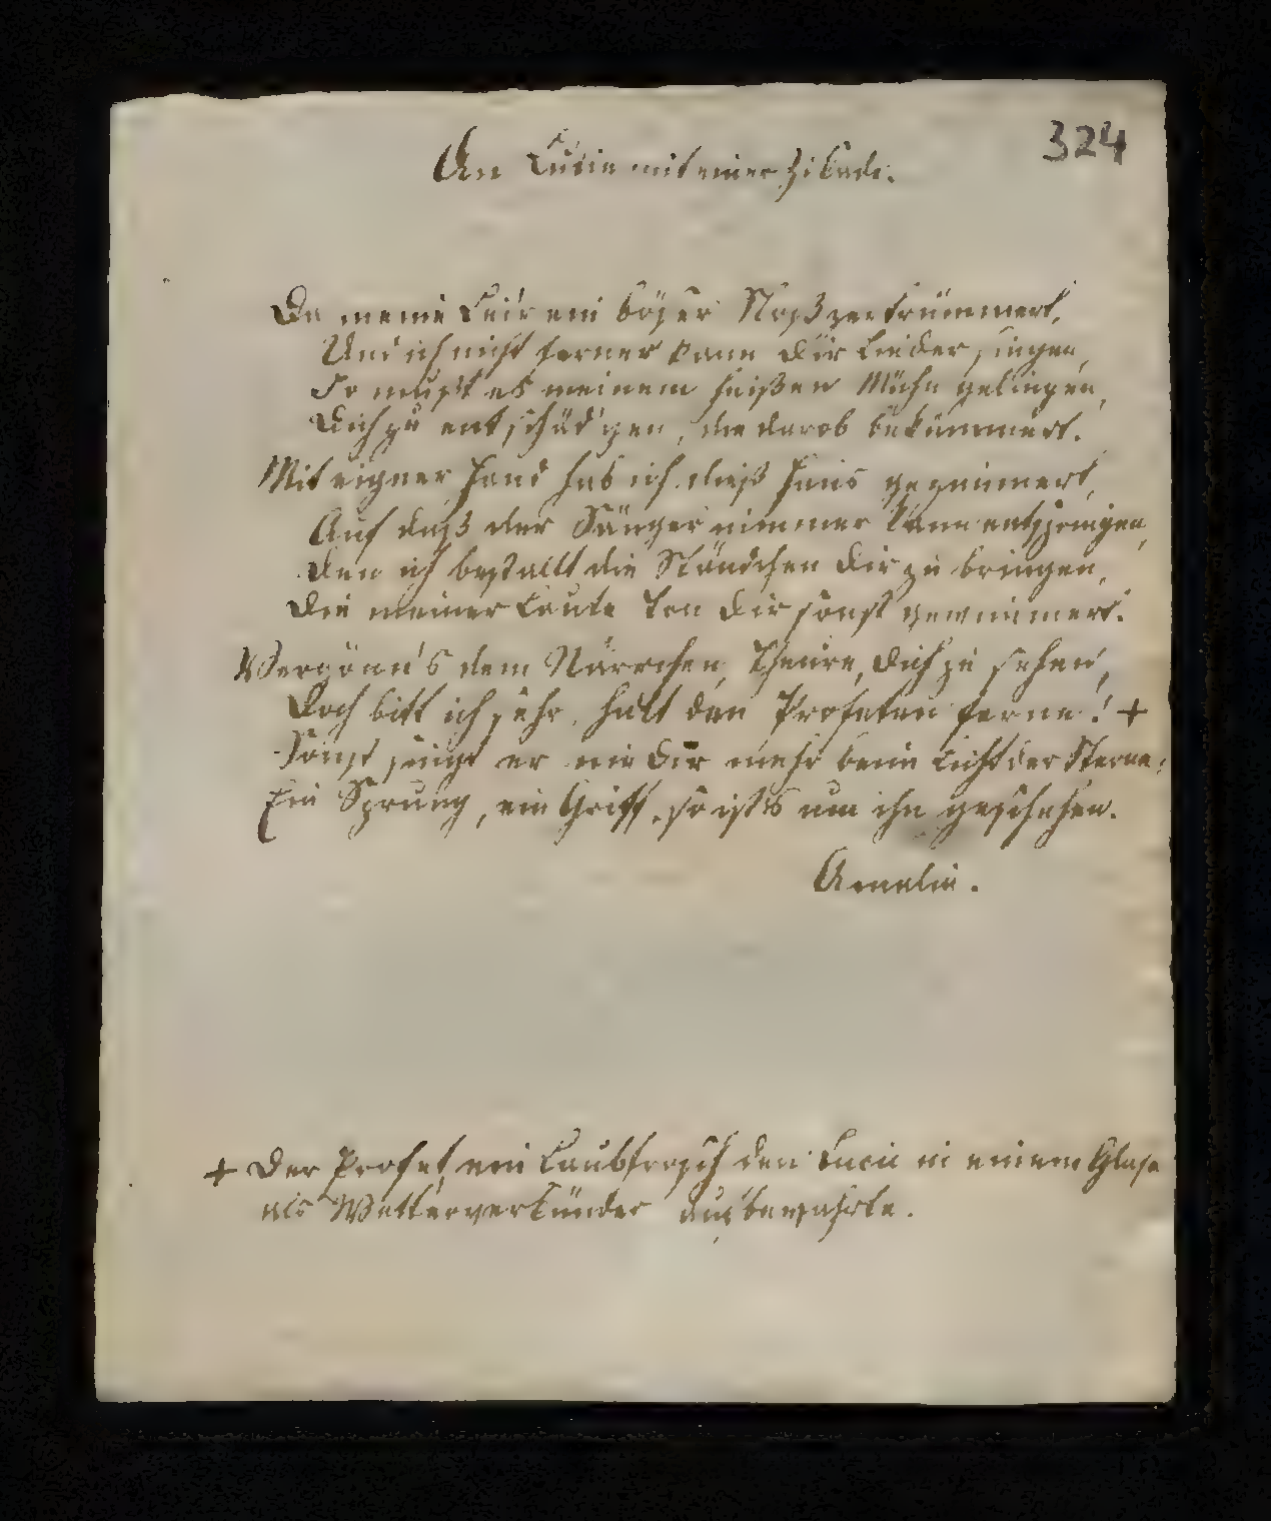 324
An Lucie mit einer Zikade.
Da meine Leier ein böser Stoß zertrümmert,
Und ich nicht ferner kann Dir Lieder singen,
So mußt es meinem heißen Mühn gelingen,
Dich zu entschäd'gen, die darob bekümmert.
Mit eigner Hand hab ich dieß Haus gezimmert,
Auf daß der Sänger nimmer kann entspringen,
Den ich bestallt die Ständchen Dir zu bringen,
Die meiner Laute Ton Dir sonst gewimmert.
Vergönn's dem Närrchen, Theure, Dich zu sehen,
Doch bitt ich sehr, halt den Profeten ferne! +
Sonst singt er nie Dir mehr beim Licht der Sterne:
Ein Sprung, ein Griff, so ist's um ihn geschehen.
Amalie.
+ Der Profet, ein Laubfrosch den Lucie in einem Glase
als Wetterverkünder aufbewahrte.